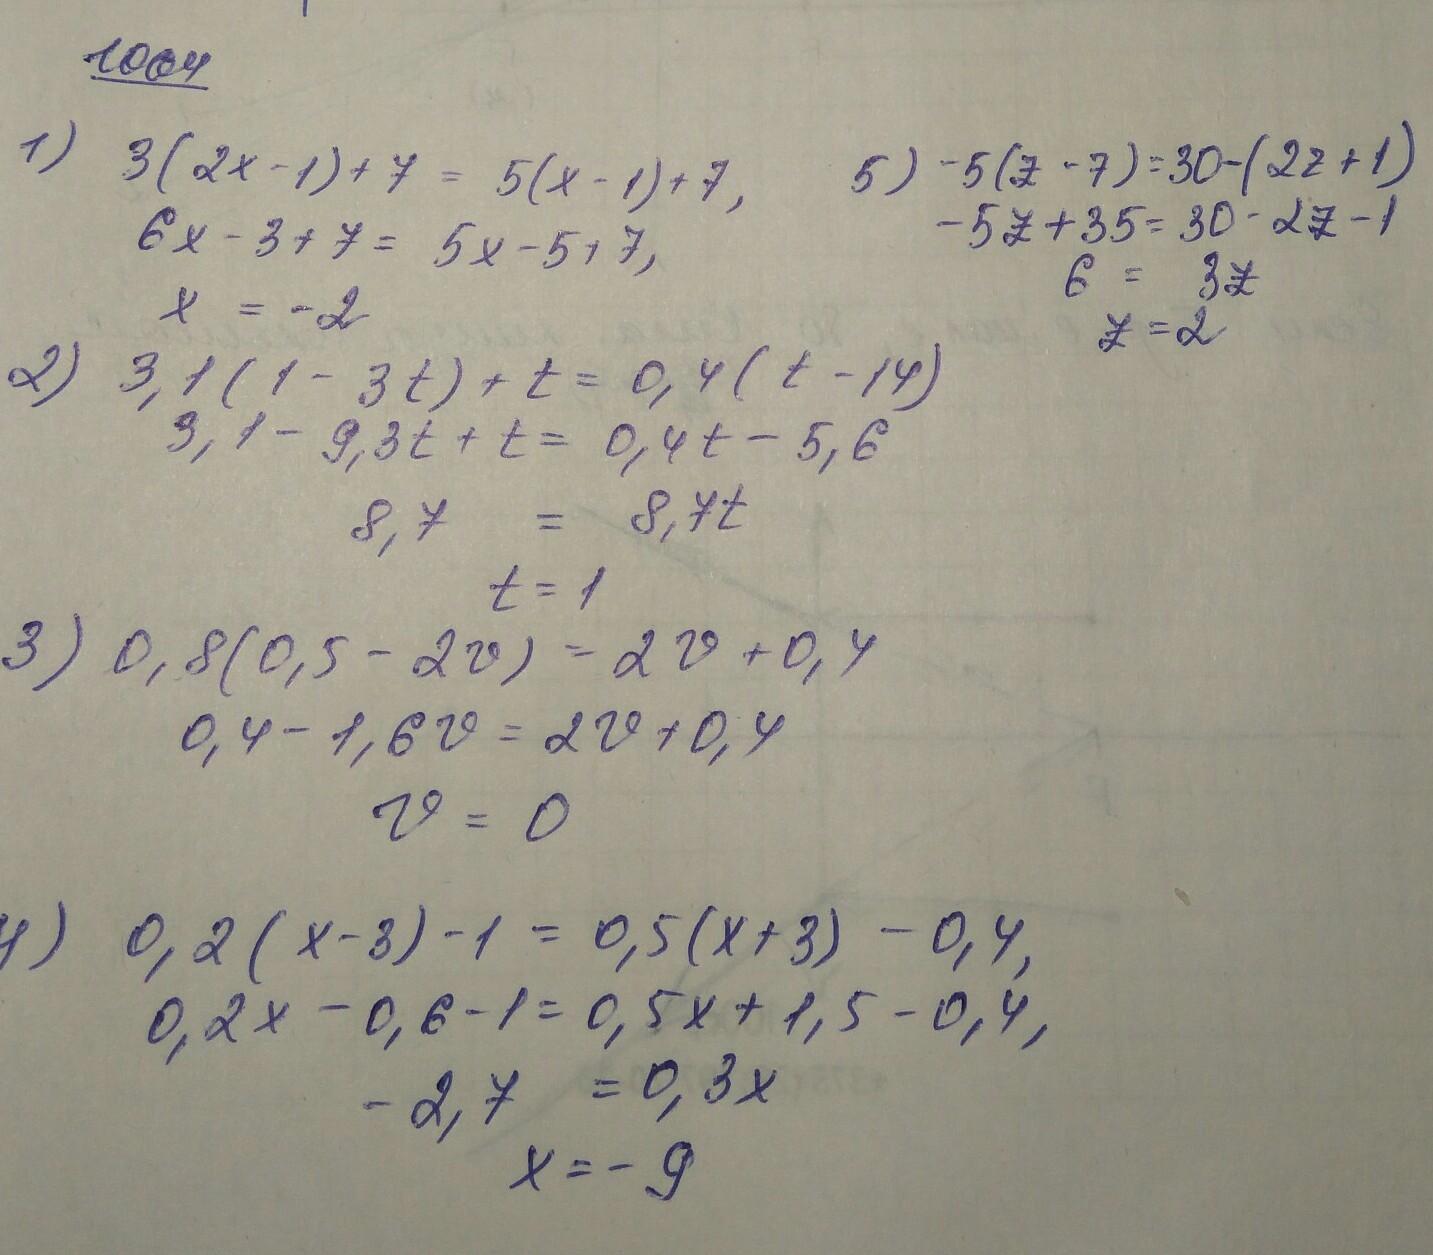 1004
1) 3(2x-1)+7 = 5(x-1)+7,
6x-3+7 = 5x-5+7,
x = -2
2) 3,1(1-3t)+t = 0,4(t-14)
3,1-9,3t+t = 0,4t-5,6
8,7 = 8,7t
t=1
3) 0,8(0,5-2v) = 2v+0,4
0,4-1,6v = 2v+0,4
v = 0
4) 0,2(x-3)-1 = 0,5(x+3)-0,4,
0,2x-0,6-1 = 0,5x+1,5-0,4,
-2,7 = 0,3x
x=-9
5) -5(z-7)=30-(2z+1)
-5z+35=30-2z-1
6 = 3z
z=2